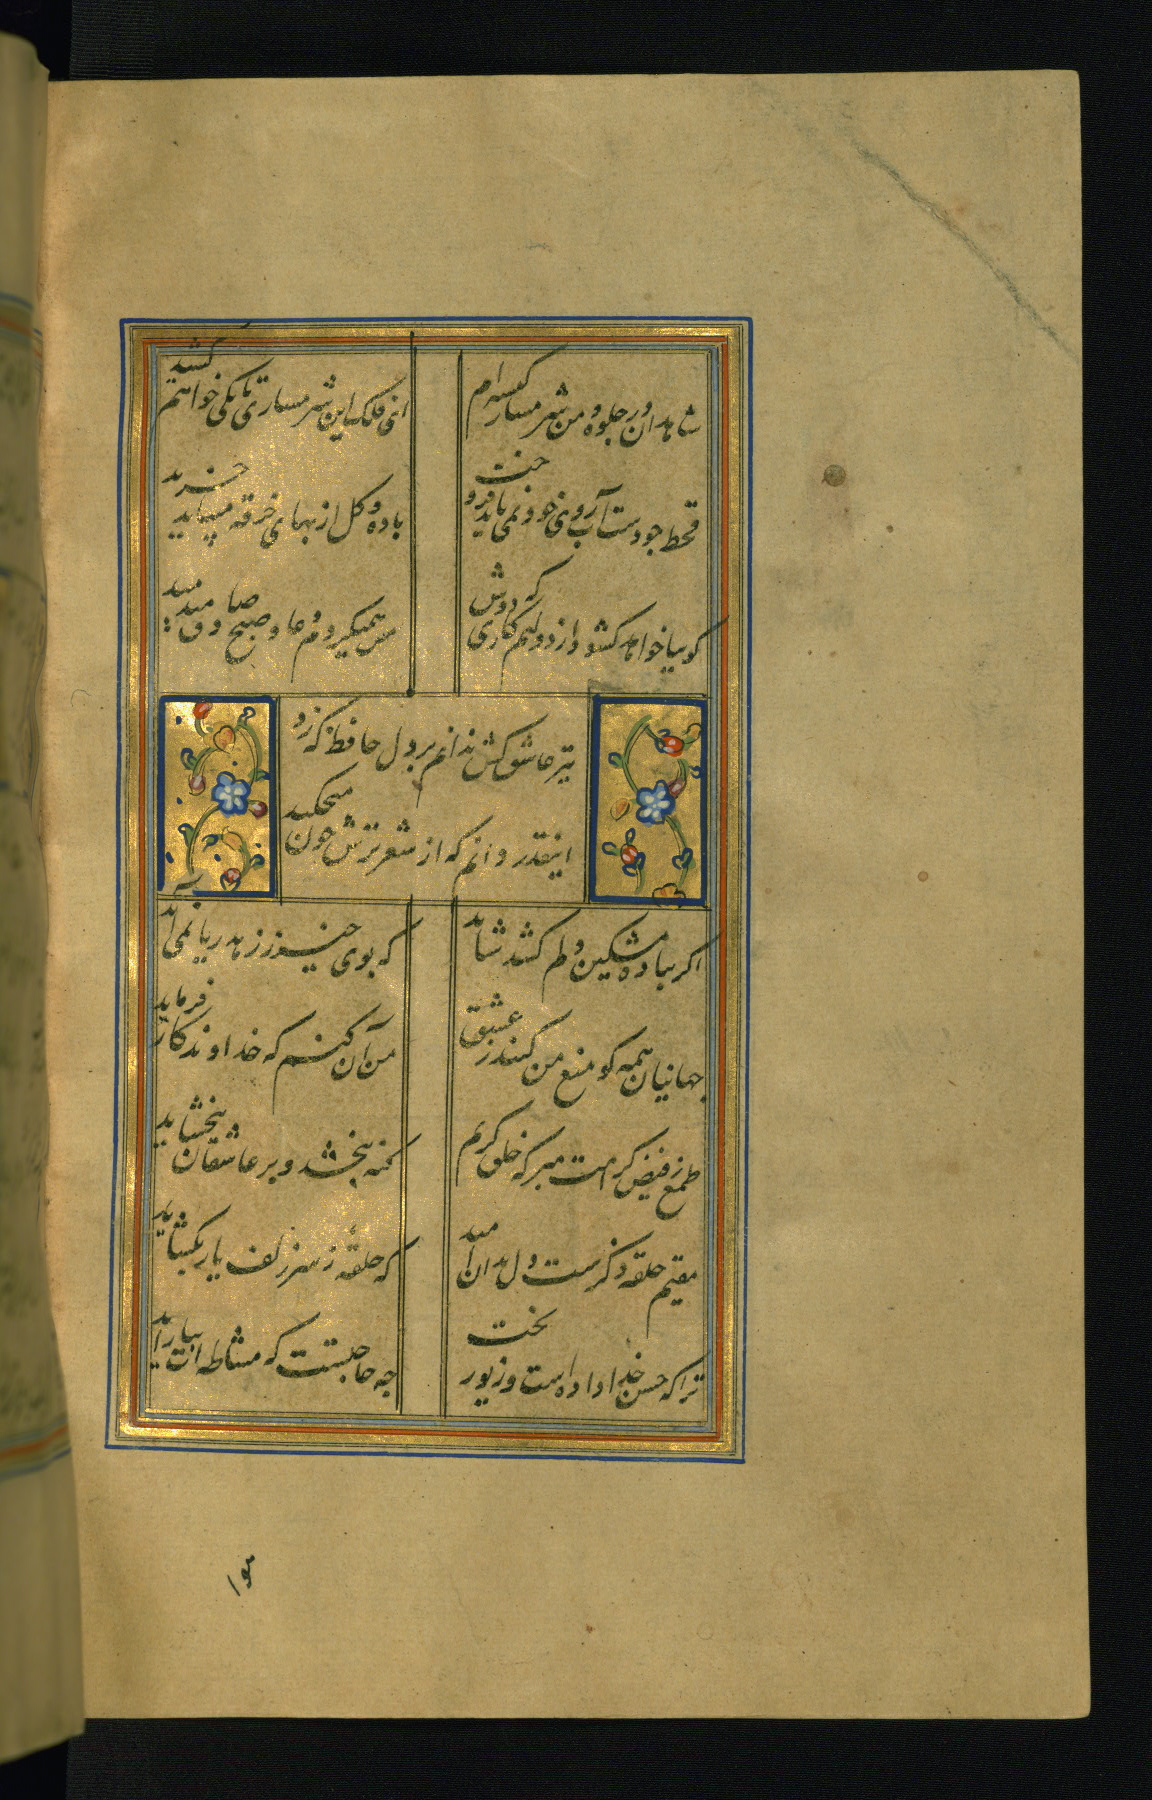 شاهدان در جلوه و من شرمسار کیسه ام
ای فلک این شرمساری تا بکی خواهم کشید
قحط جودست آب روی خود نمی باید فروخت
باده و کل از بهای خرقه میباید خرید
کوییا خواهد کشود از دولتم کاری که دوش
من همیکردم دعا و صبح صادق میدمید
تیر عاشق کش ندانم بر دل حافظ که زد
اینقدر دانم که از شعر ترش خون میچکید
اکر بباده مشکین دلم کشد شاید
که بوی خیر ز زهد ریا نمی آید
جهانیان همه کو منع من کنند ز عشق
من آن کنم که خداوندکار فرماید
طمع ز فیض کرامت مبر که خلق کریم
کنه ببخشد و بر عاشقان ببخشاید
مقیم حلقه ذکرست دل بدان امید
که حلقه ز سر زلف یار بکشاید
ترا که حسن خدا داده است و زیور بخت
چه حاجتست که مشاطه ات بیاراید